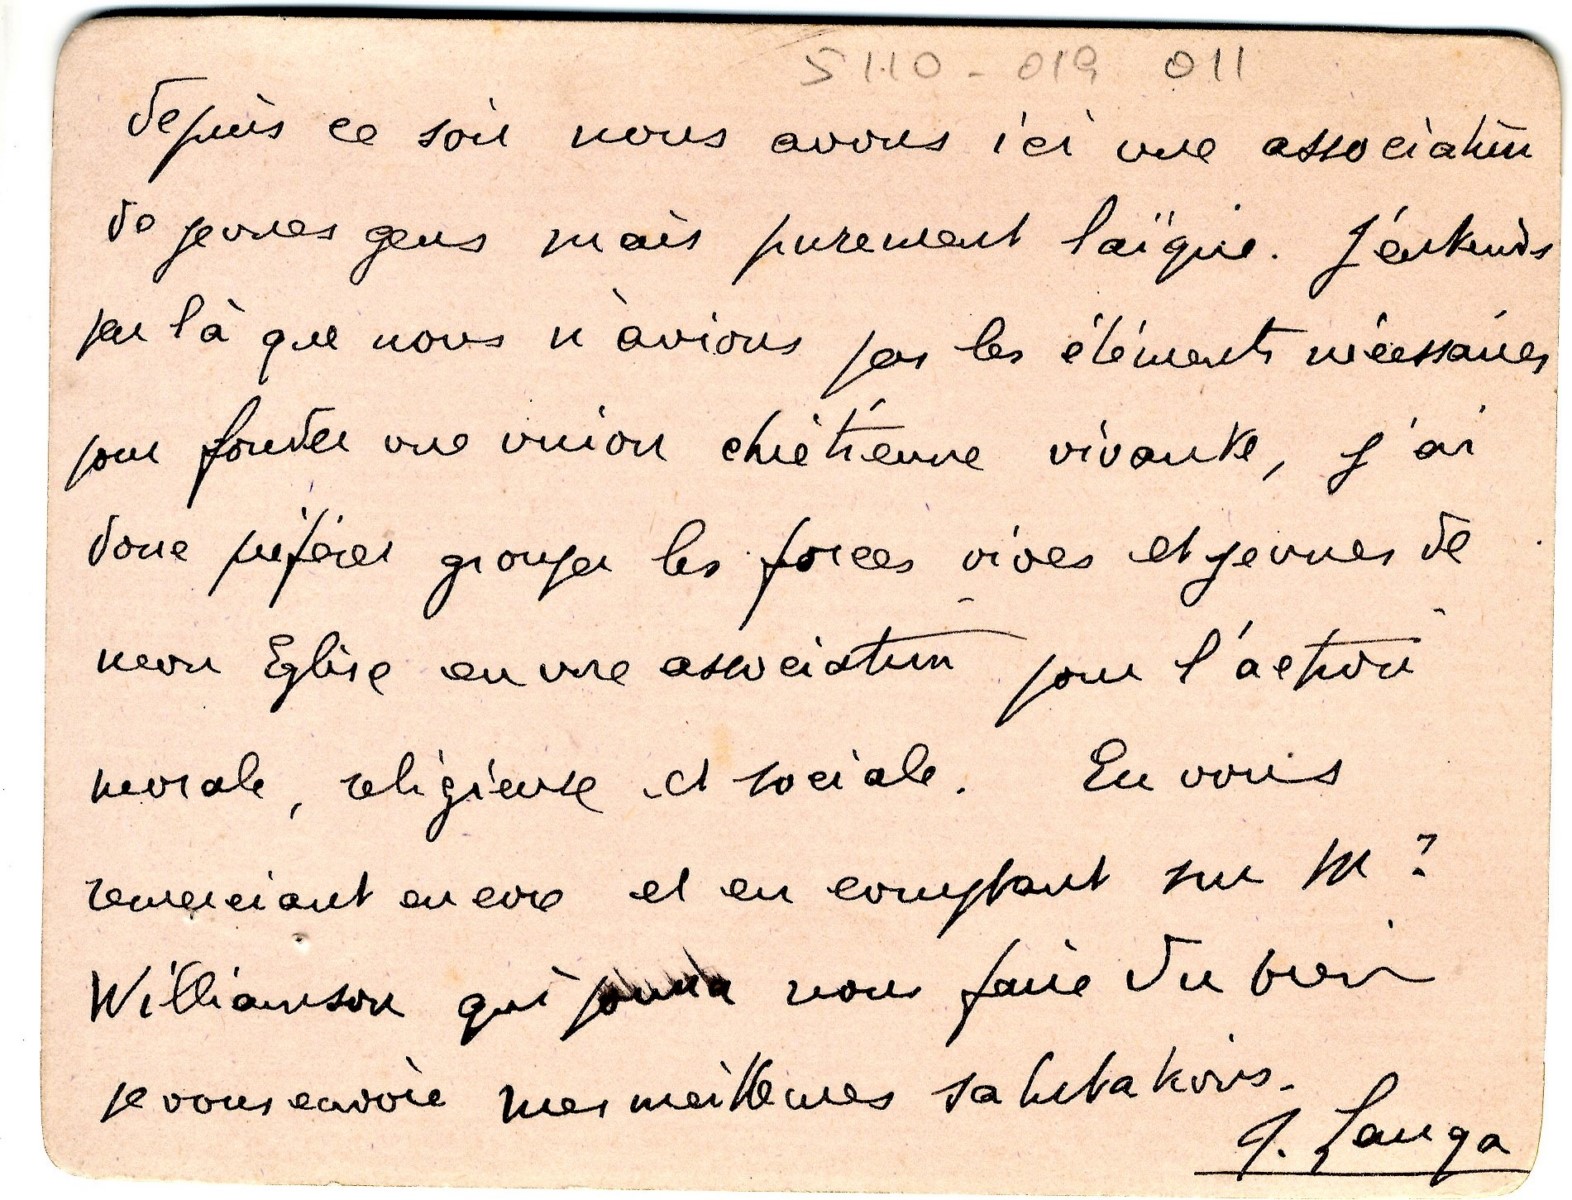 5110 - 019 011
depuis ce soir nous avons ici une association
de jeunes gens mais purement laïque. J'entends
par là que nous n'avions pas les éléments nécessaires
pour fonder une union chrétienne vivante, j'ai
donc préféré grouper les forces vives et jeunes de
mon Eglise en une association pour l'action
morale, religieuse et sociale. En vous
remerciant encore et en comptant sur M
Williamson qui pourra nous faire du bien
je vous envoie mes meilleures salutations.
J. Lauga